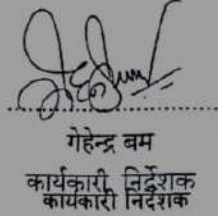 गेहेन्द्र बम
कार्यकारी निर्देशक
कार्यकारी निर्देशक